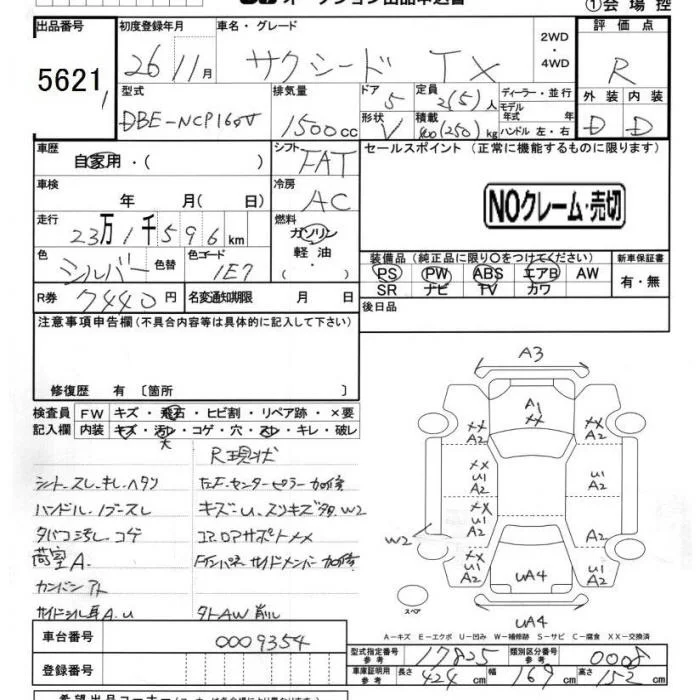 オークション出品申込書
①会場控
出品番号 初度登録年月 車名・グレード 2WD・4WD 評価点
5621 26 11月 サクシード TX R
型式 排気量 ドア 定員 ディーラー・並行 外装 内装
DBE-NCP160V 1500cc 5 2(5)人 モデル年式 年 D D
形状 積載 ハンドル 左・右
V 400(250)kg
車歴 シフト セールスポイント (正常に機能するものに限ります)
自家用・( ) FAT
車検 年 月( 日) 冷房 AC
NOクレーム・売切
走行 23万1千596km 燃料 ガソリン
軽油・
色 シルバー 色替 色コード 1E7
装備品 (純正品に限り○をつけてください) 新車保証書
PS PW ABS エアB AW 有・無
SR ナビ TV カワ
R券 7440円 名変通知期限 月 日
後日品
注意事項申告欄(不具合内容等は具体的に記入して下さい)
修復歴 有 〔箇所 〕
検査員 FW キズ・飛石・ヒビ割・リペア跡・×要
記入欄 内装 キズ・汚レ・コゲ・穴・スレ・キレ・破レ
大
R現状
シート・スレ・キレ・ヘタリ
ハンドル・ノブ・スレ キズ・U・スリキズ多 W2
タバコ汚レ・コゲ コアロアサポートXX
荷室A. Fインパネ サイドメンバー 加修
カンバンアト
サイドシル耳A.U タトAW 削ル
A3
A1
XX
XX A2 XX A2
XX U1 A2 U1 A2
XX U1 A2 A2
W2
XX U1 A2 U1 A2
UA4
スペア
UA4
A−キズ E−エクボ U−凹み W−補修跡 S−サビ C−腐食 XX−交換済
車台番号 0009354
型式指定番号 参考 17825 類別区分番号 参考 0008
登録番号
車庫証明用 参考 長さ 424cm 幅 169cm 高さ 152cm